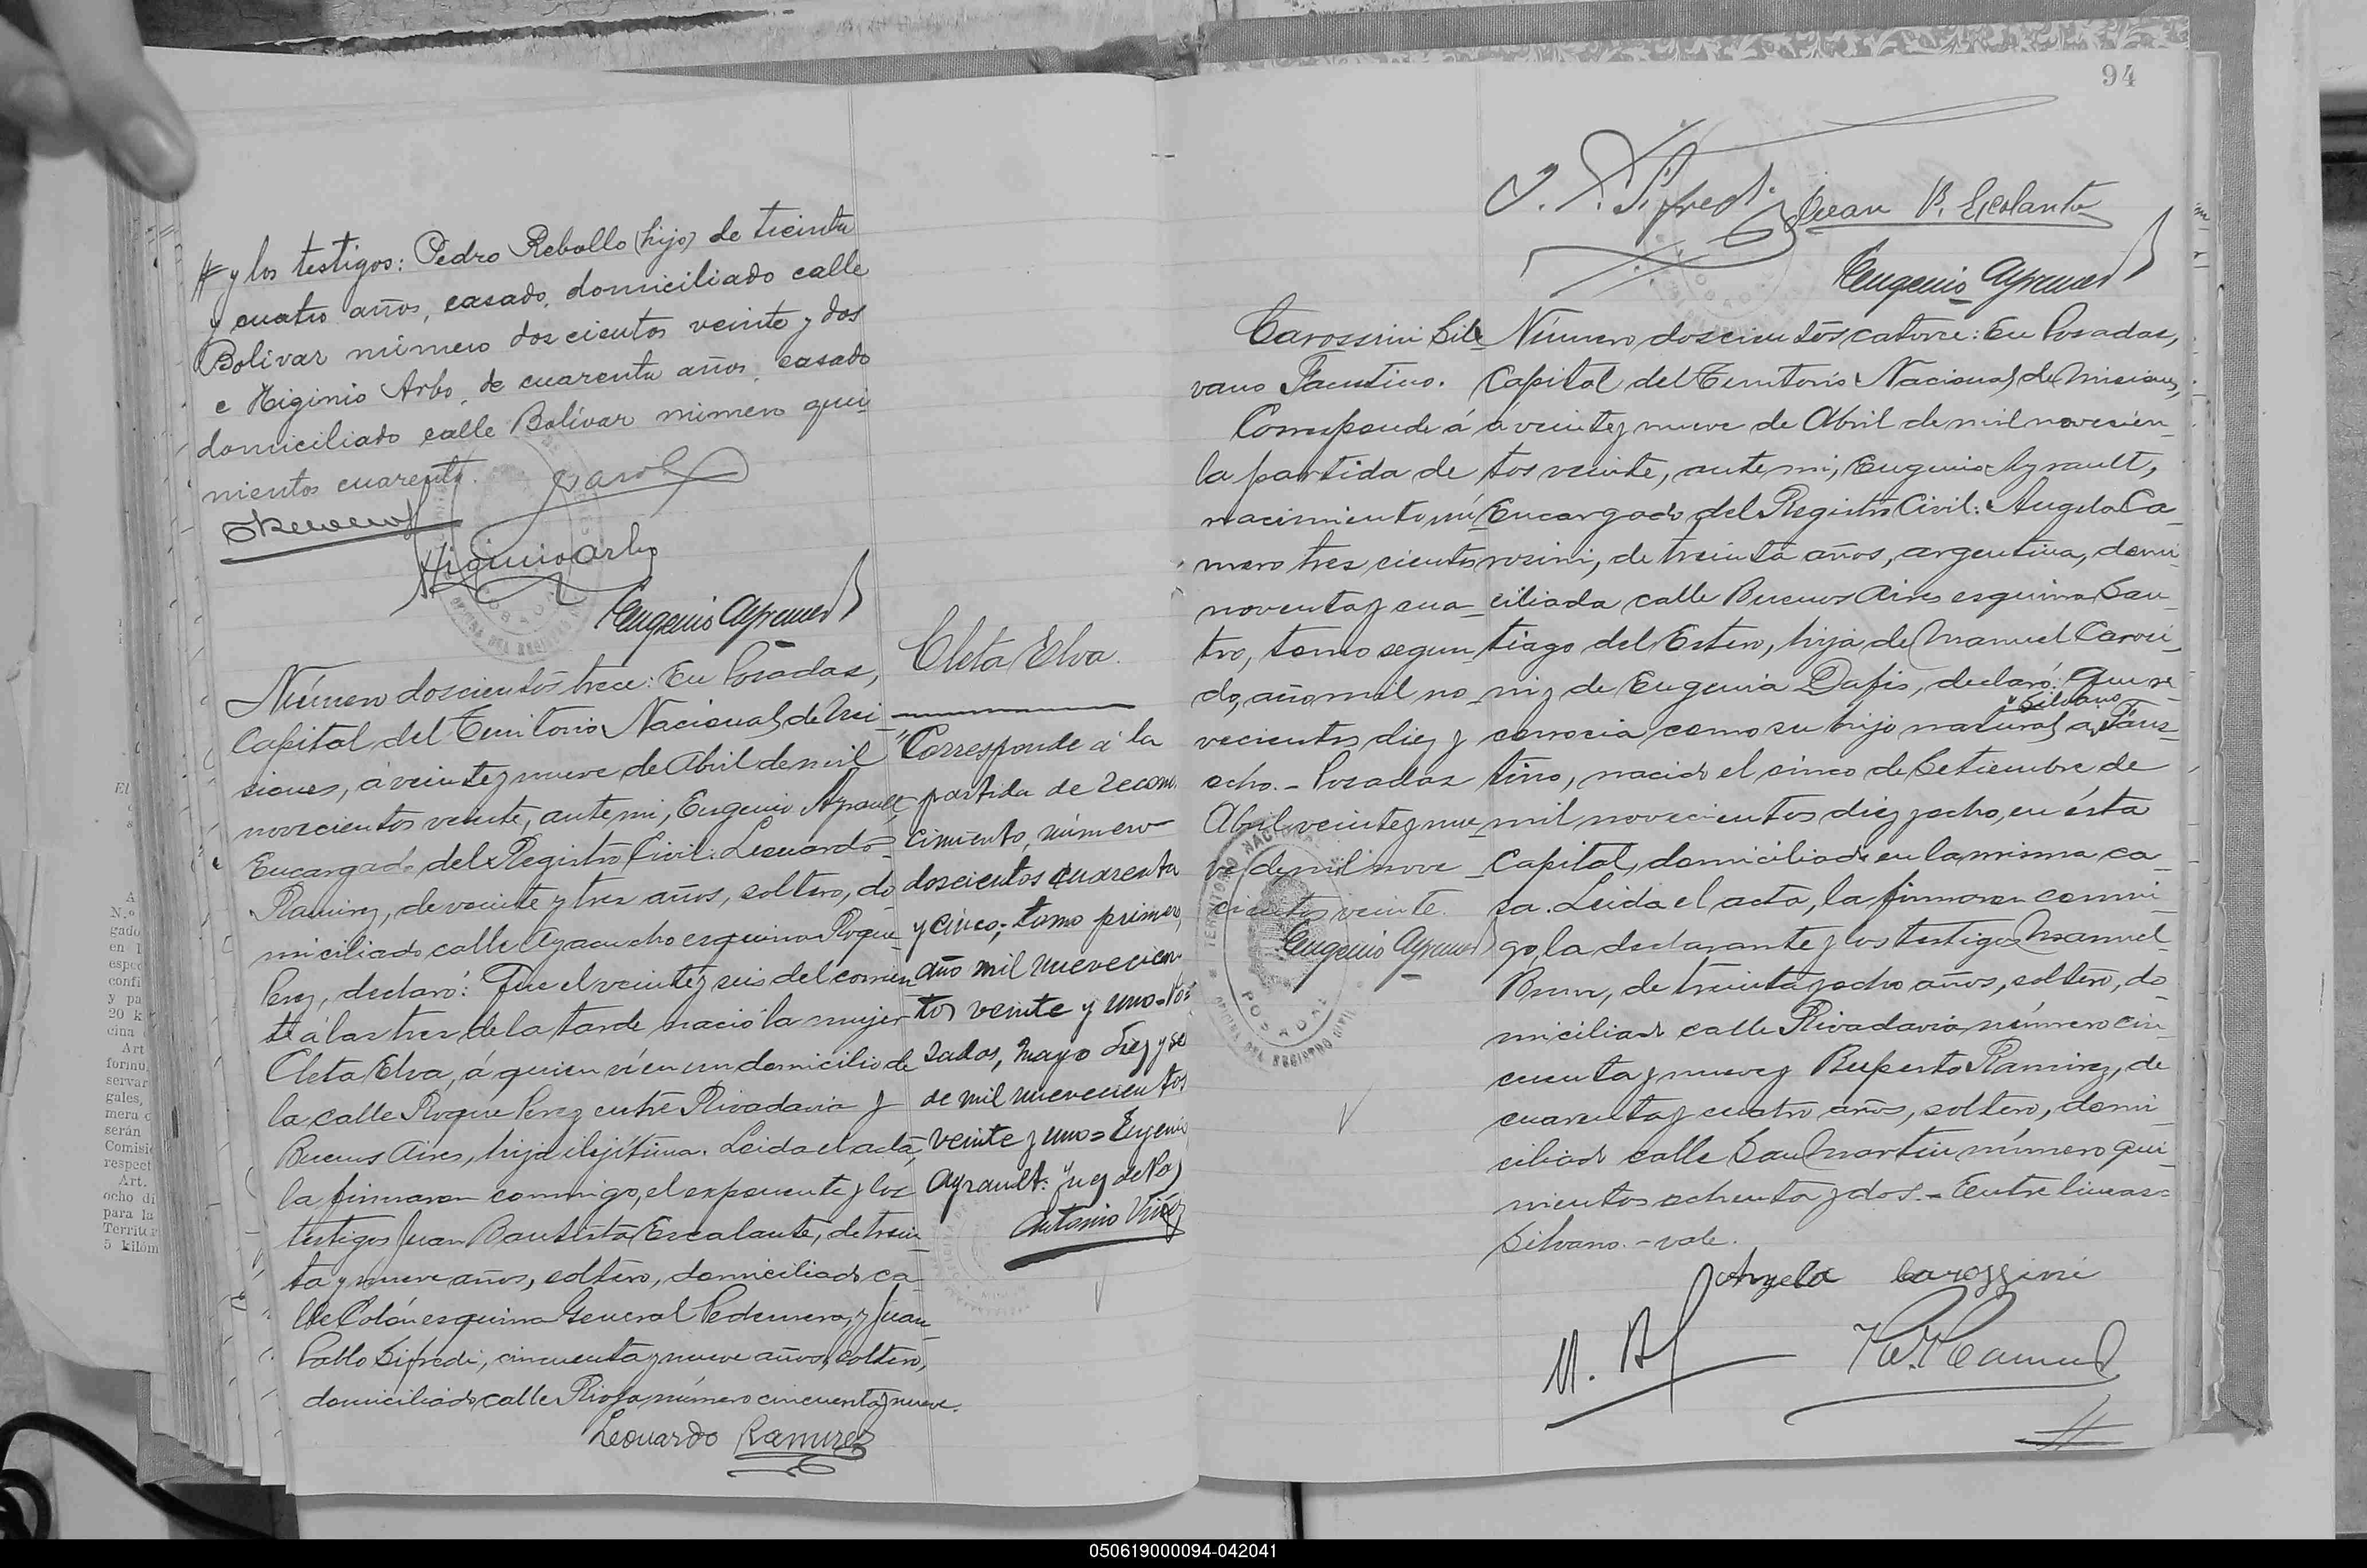 # y los testigos: Pedro Rebollo (hijo) de treinta
y cuatro años, casado, domiciliado calle
Bolivar número doscientos veinte y dos
e Higinio Arbo, de cuarenta años, casado
domiciliado calle Bolívar número qui
nientos cuarenta.
Higinio Arbo
Eugenio Ayrault
Número doscientos trece: En Posadas,
Capital del Territorio Nacional de Mi
siones, á veinte y nueve de Abril de mil
novecientos veinte, ante mi, Eugenio Ayrault,
Encargado del Registro Civil: Leonardo
Ramirez, de veinte y tres años, soltero, do
miciliado calle Ayacucho esquina Roque
Perez, declaró: Que el veinte y seis del corrien
te á las tres de la tarde nació la mujer
Cleta Elva, á quien ví en un domicilio de
la calle Roque Perez entre Rivadavia y
Buenos Aires, hija ilejítima. Leida el acta,
la firmaron conmigo, el exponente y los
testigos Juan Bautista Escalante, de trein
ta y nueve años, soltero, domiciliado ca
lle Colón esquina General Pedernera, y Juan
Pablo Sifredi, cincuenta y nueve años, soltero,
domiciliado calle Rioja número cincuenta y nueve.
Leonardo Ramirez
Cleta Elva.
"Corresponde á la
partida de recono
cimiento, número
doscientos cuarenta
y cinco; tomo primero,
año mil nuevecien
tos veinte y uno = Po=
sadas, mayo diez y se
de mil nuevecientos
veinte y uno = Eugenio
Ayrault: Juez de Paz
Antonio
94
J. P. Sifredi Juan B. Escalante
Eugenio Ayrault
Carossini Sil
vano Faustino.
Corresponde á
la partida de
nacimiento nú
mero tres cientos
noventa y cua
tro, tomo segun
do, año mil no
vecientos diez y
ocho. - Posadas
Abril veinte y nue
ve de mil nove
cientos veinte.
Eugenio Ayrault
TERRITORIO NACIONAL
POSADAS
OFICINA DEL REGISTRO CIVIL
Número doscientos catorce: En Posadas,
Capital del Territorio Nacional de Misiones,
á veinte y nueve de Abril de mil novecien
tos veinte, ante mi, Eugenio Ayrault,
Encargado del Registro Civil: Angela Ca
rosini, de treinta años, argentina, domi
ciliada calle Buenos Aires esquina San
tiago del Estero, hija de Manuel Carosi
ni y de Eugenia Dafis, declaró: Que re
"Silvano
conocia como su hijo natural a Faus
tino, nacido el cinco de Setiembre de
mil novecientos diez y ocho, en ésta
Capital, domiciliado en la misma ca
sa. Leida el acta, la firmaron conmi
go, la declarante y los testigos Manuel
de treinta y ocho años, soltero, do
miciliado calle Rivadavia número cin
cuenta y nueve y Ruperto Ramirez, de
cuarenta y cuatro años, soltero, domi
ciliado calle San Martin número qui
nientos ochenta y dos. - Entre lineas =
Silvano. - vale.
Angela Carossini
050619000094-042041